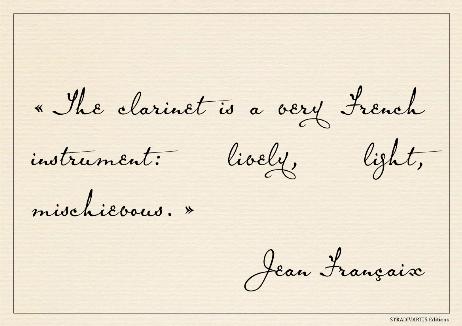 « The clarinet is a very French
instrument: lively, light,
mischievous. »
Jean Françaix
STRADIVARIUS Editions